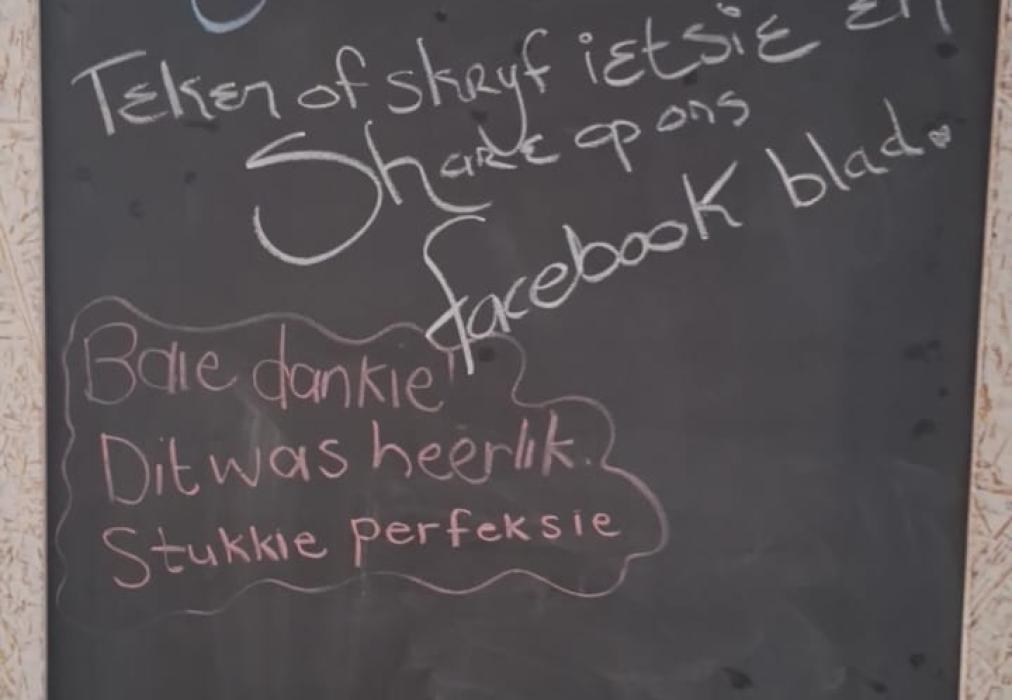 Teken of skryf ietsie en
Share op ons
facebook blad.
Baie dankie!
Dit was heerlik.
Stukkie perfeksie